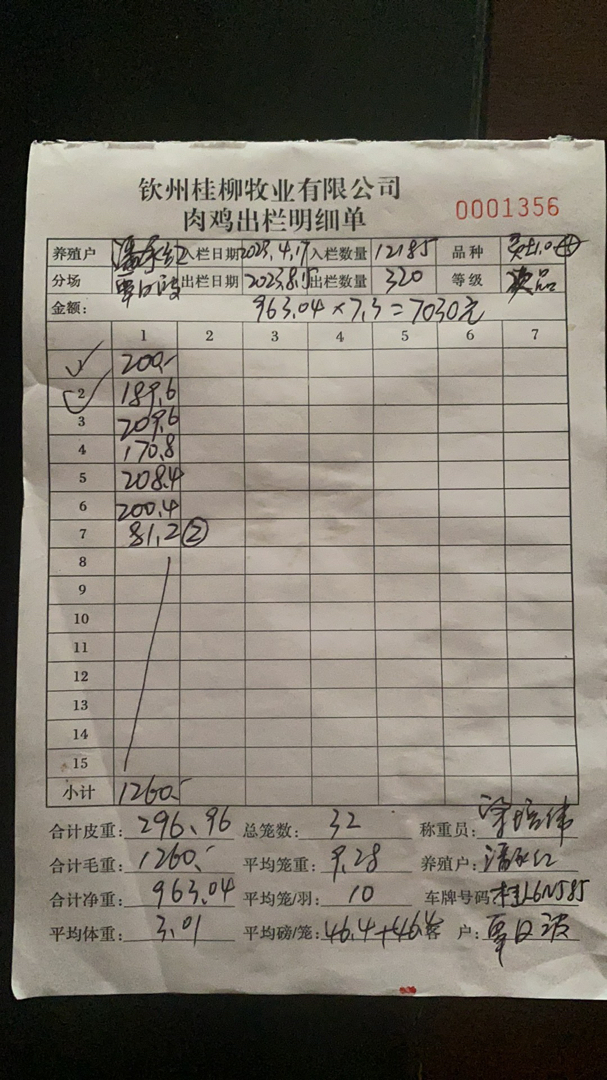 钦州桂柳牧业有限公司
肉鸡出栏明细单 0001356
养殖户 入栏日期 2023.4.17 入栏数量 12185 品种
分场 覃日波 出栏日期 2023.8.15 出栏数量 320 等级 次品
金额: 963.04×7.3=7030元
1 2 3 4 5 6 7
1 200.-
2 189.6
3 209.6
4 170.8
5 208.4
6 200.4
7 81.2②
8
9
10
11
12
13
14
15
小计 1260.-
合计皮重: 296.96 总笼数: 32 称重员:
合计毛重: 1260.- 平均笼重: 9.28 养殖户:
合计净重: 963.04 平均笼/羽: 10 车牌号码: 桂L6N585
平均体重: 3.01 平均磅/笼: 46.4+46.4 客户: 覃日波